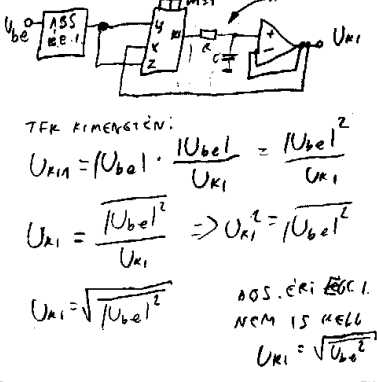 U_be
ABS
y
x
z
ki
R
C
+
-
U_KI
TFK KIMENETÉN:
U_KI1 = |U_be| · |U_be| / U_KI = |U_be|² / U_KI
U_KI = \overline{|U_be|²} / U_KI => U_KI² = \overline{|U_be|²}
U_KI = √\overline{|U_be|²}
ABS. ÉRT
NEM IS KELL
U_KI = √\overline{U_be²}